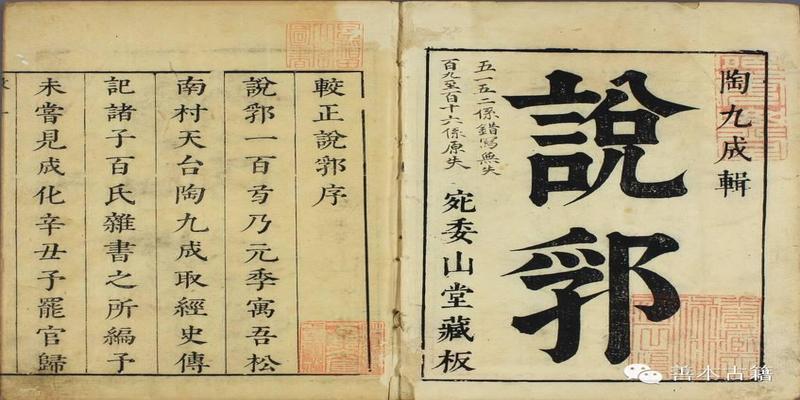 陶九成輯
說郛
宛委山堂藏板
五一五二係錯寫無失
百九至百十六係原失
較正說郛序
說郛一百𢎥乃元季寓吾松
南村天台陶九成取經史傳
記諸子百氏雜書之所編予
未嘗見成化辛丑予罷官歸
善本古籍